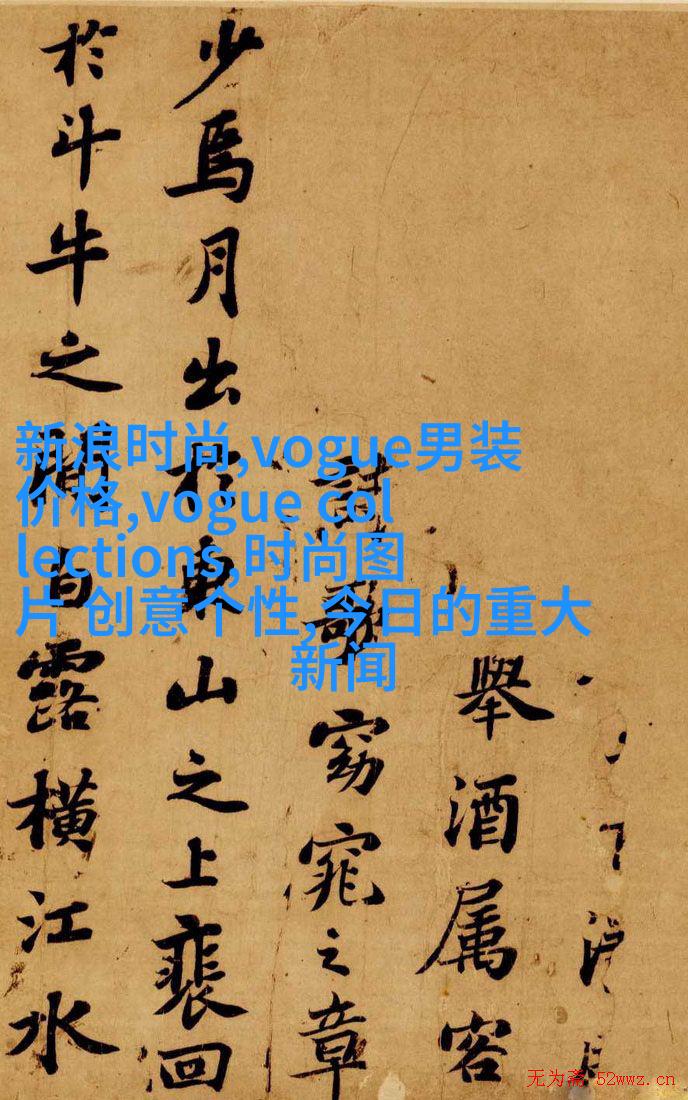 舉酒属客
詩歌窈窕之章
少焉月出於東山之上裴回
於斗牛之間白露橫江水
新浪时尚,vogue男装
价格,vogue col
lections,时尚图
片 创意个性,今日的重大
新闻
无为斋 52wwz.cn